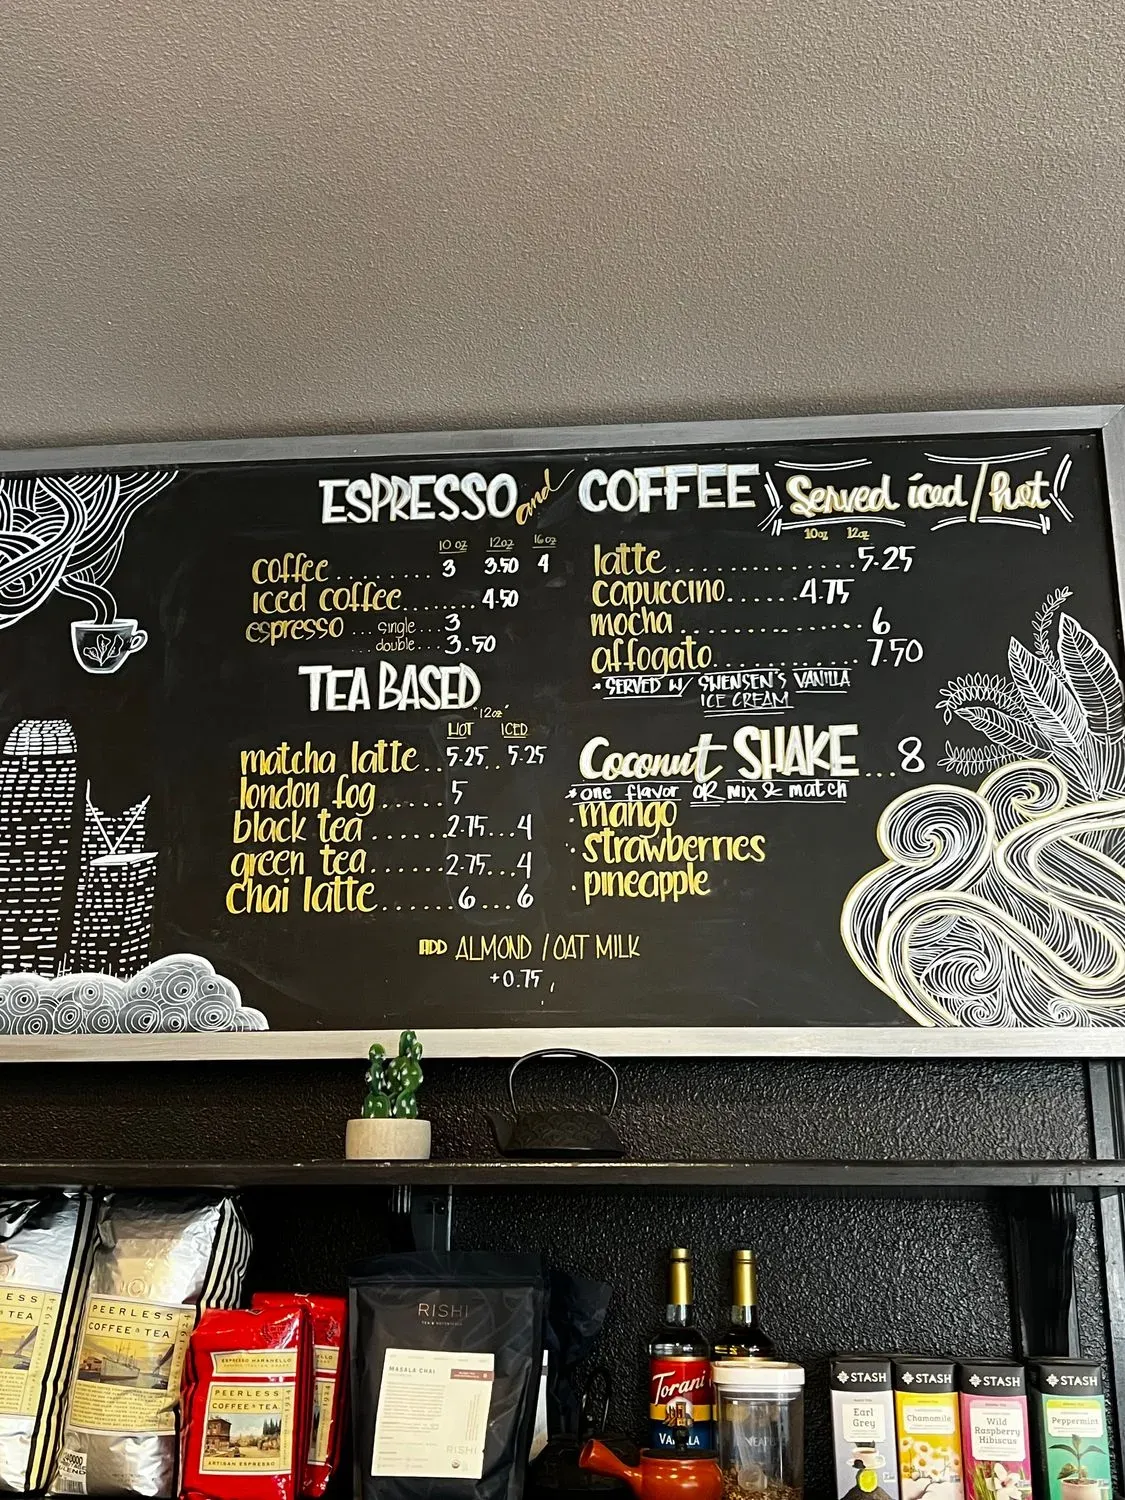 ESPRESSO and COFFEE Served iced/hot
10 oz 12oz 16oz
coffee ........ 3 3.50 4
iced coffee........ 4.50
espresso ... single... 3
double... 3.50
10oz 12oz
latte ............... 5.25
capuccino......4.75
mocha ............... 6
affogato............ 7.50
* SERVED W/ SWENSEN'S VANILLA
ICE CREAM
TEA BASED
"12oz"
HOT ICED
matcha latte..5.25..5.25
london fog......5
black tea.......2.75...4
green tea......2.75...4
chai latte......6...6
Coconut SHAKE...8
* one flavor OR mix & match
· mango
· strawberries
· pineapple
ADD ALMOND / OAT MILK
+0.75
PEERLESS
COFFEE & TEA
1924
ESPRESSO MARANELLO
PEERLESS
COFFEE & TEA
1924
ARTISAN ESPRESSO
RISHI
TEA & BOTANICALS
MASALA CHAI
RISHI
Torani
VANILLA
STASH
Earl
Grey
STASH
Chamomile
STASH
Wild
Raspberry
Hibiscus
STASH
Peppermint